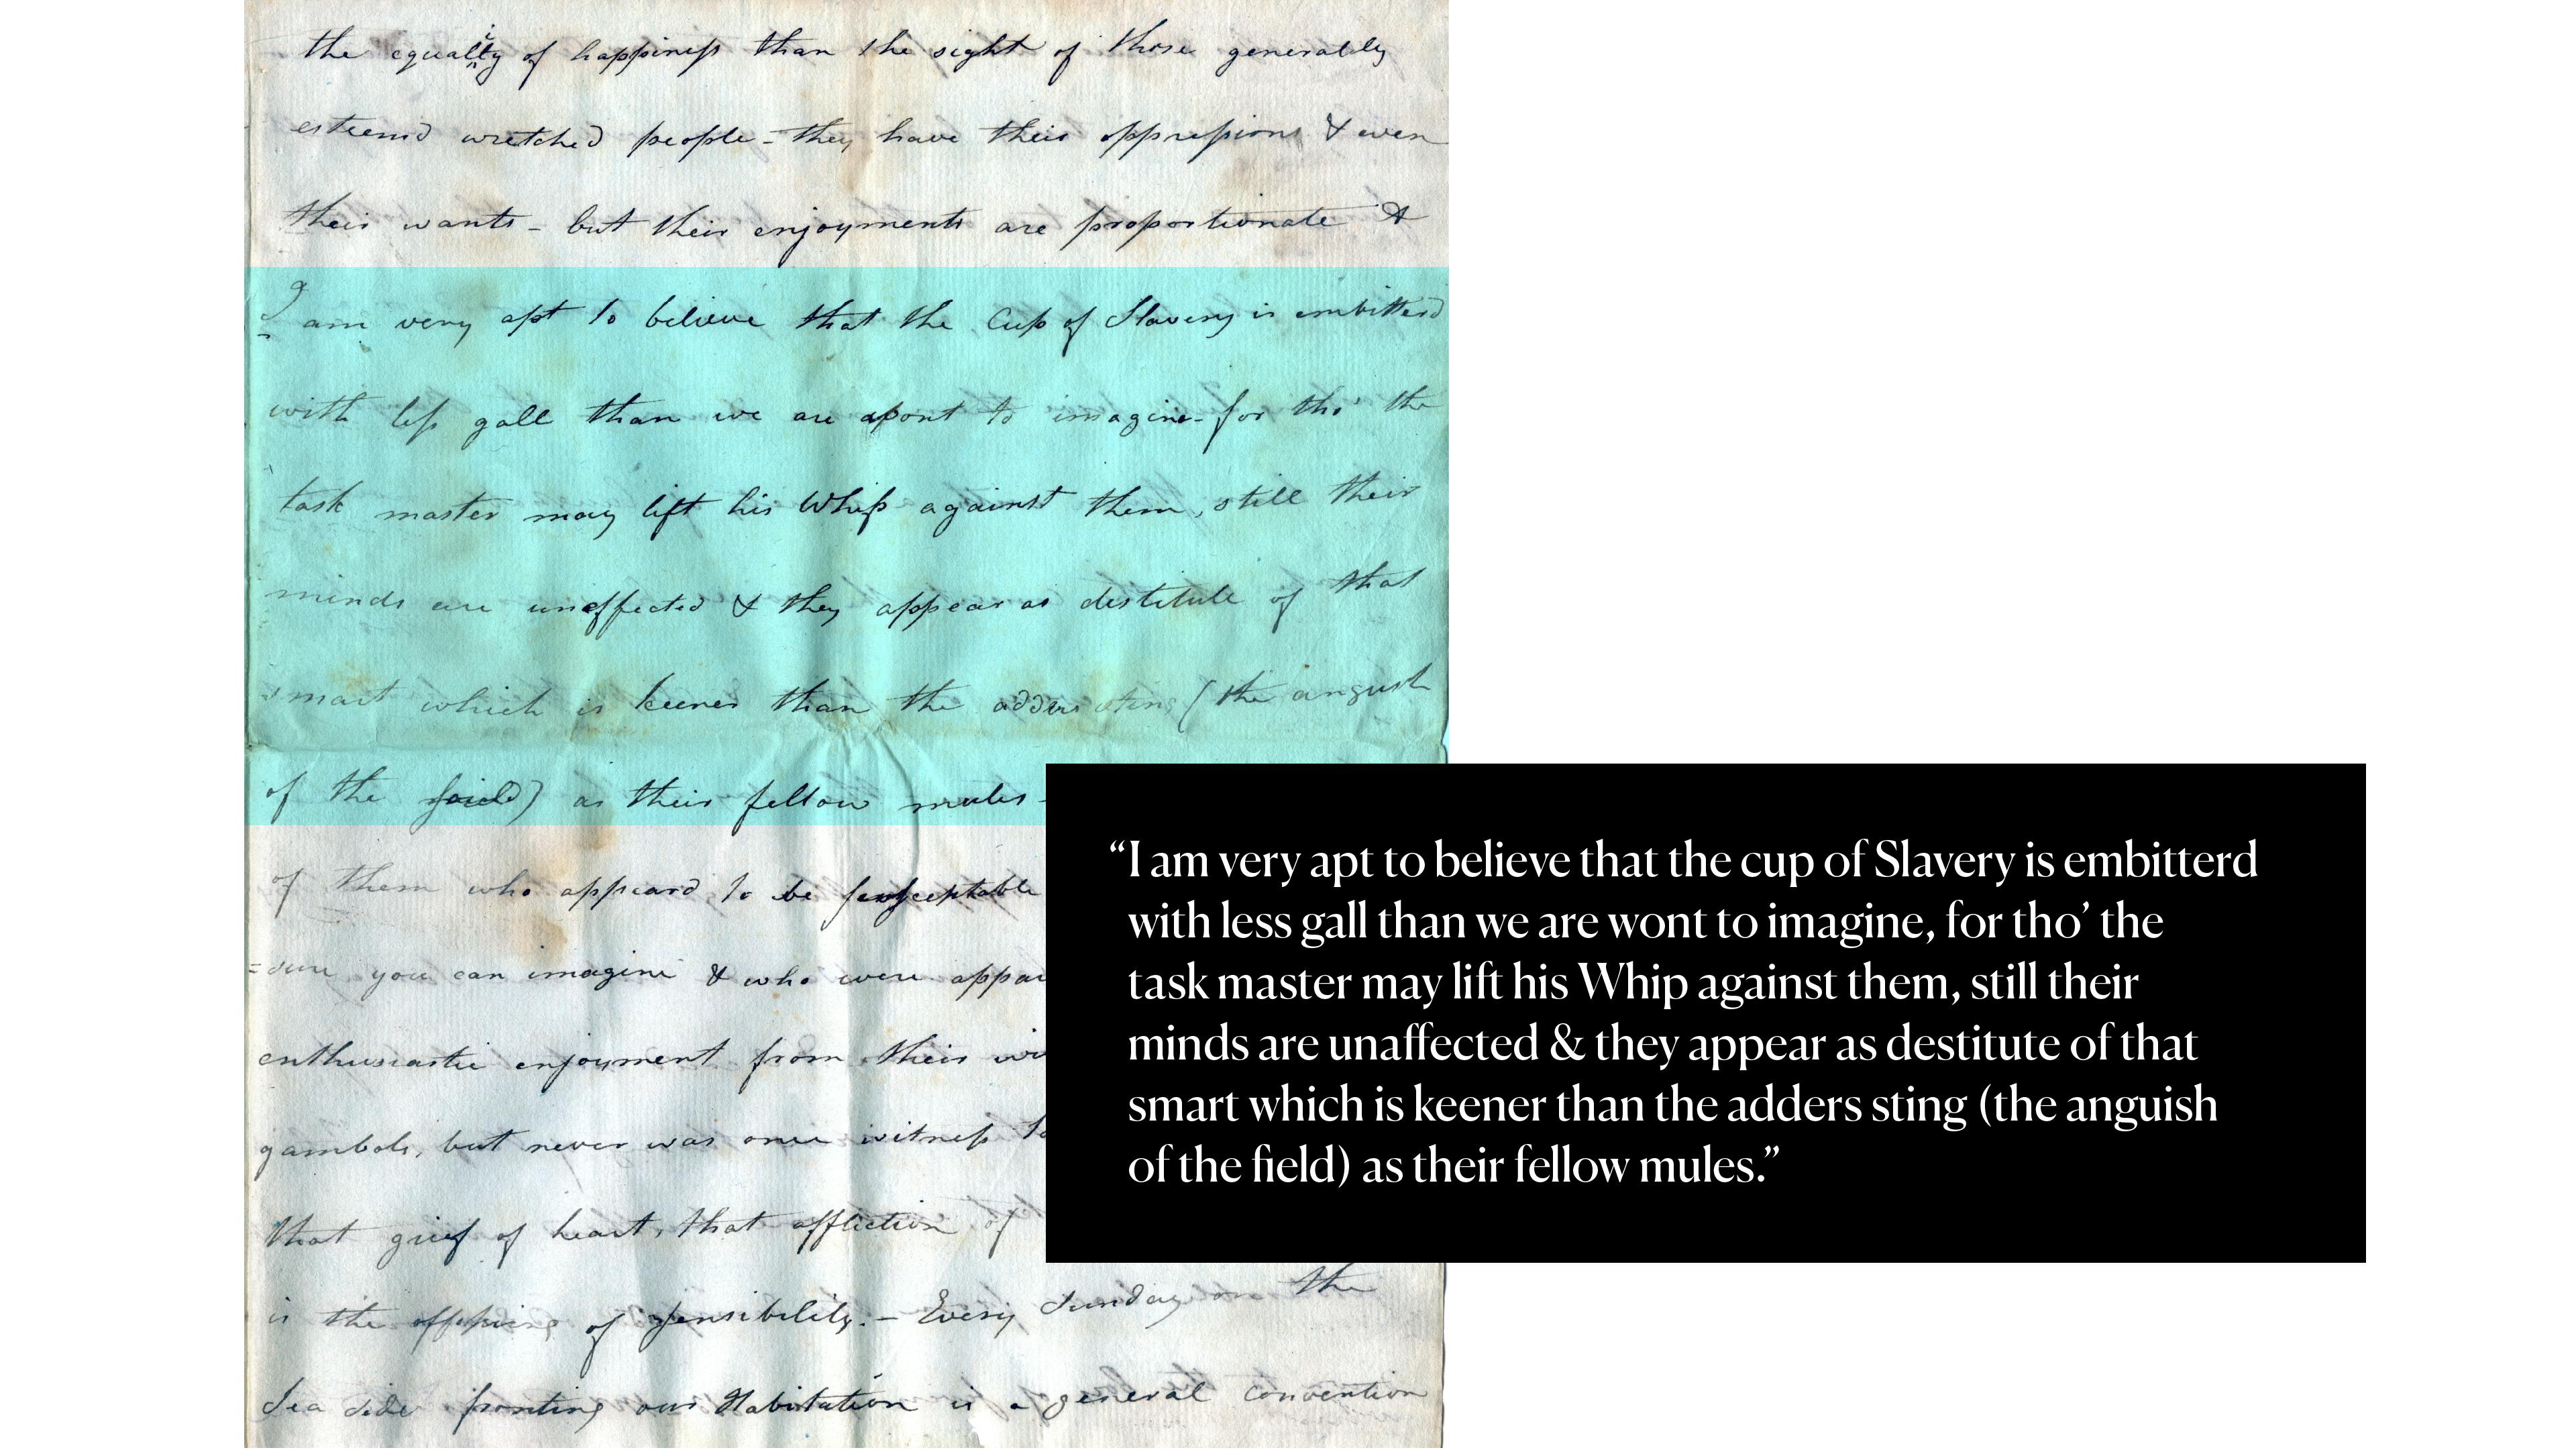 the equality of happiness than the sight of those generally
esteem'd wretched people - they have their oppressions & even
their wants - but their enjoyments are proportionate &
I am very apt to believe that the Cup of Slavery is embitterd
with less gall than we are wont to imagine - for tho' the
task master may lift his Whip against them, still their
minds are uneffected & they appear as destitute of that
smart which is keener than the adders sting (the angush
of the ) as their fellow mules -
of them who appeard to be
=sure you can imagine & who were
enthusiastic enjoyment from their
gambols, but never was once witness to
that grief of heart, that affliction of
is the offspring of sensibility. - Every Sunday on the
Sea side fronting our Habitation is a general convention
“I am very apt to believe that the cup of Slavery is embitterd
with less gall than we are wont to imagine, for tho’ the
task master may lift his Whip against them, still their
minds are unaffected & they appear as destitute of that
smart which is keener than the adders sting (the anguish
of the field) as their fellow mules.”